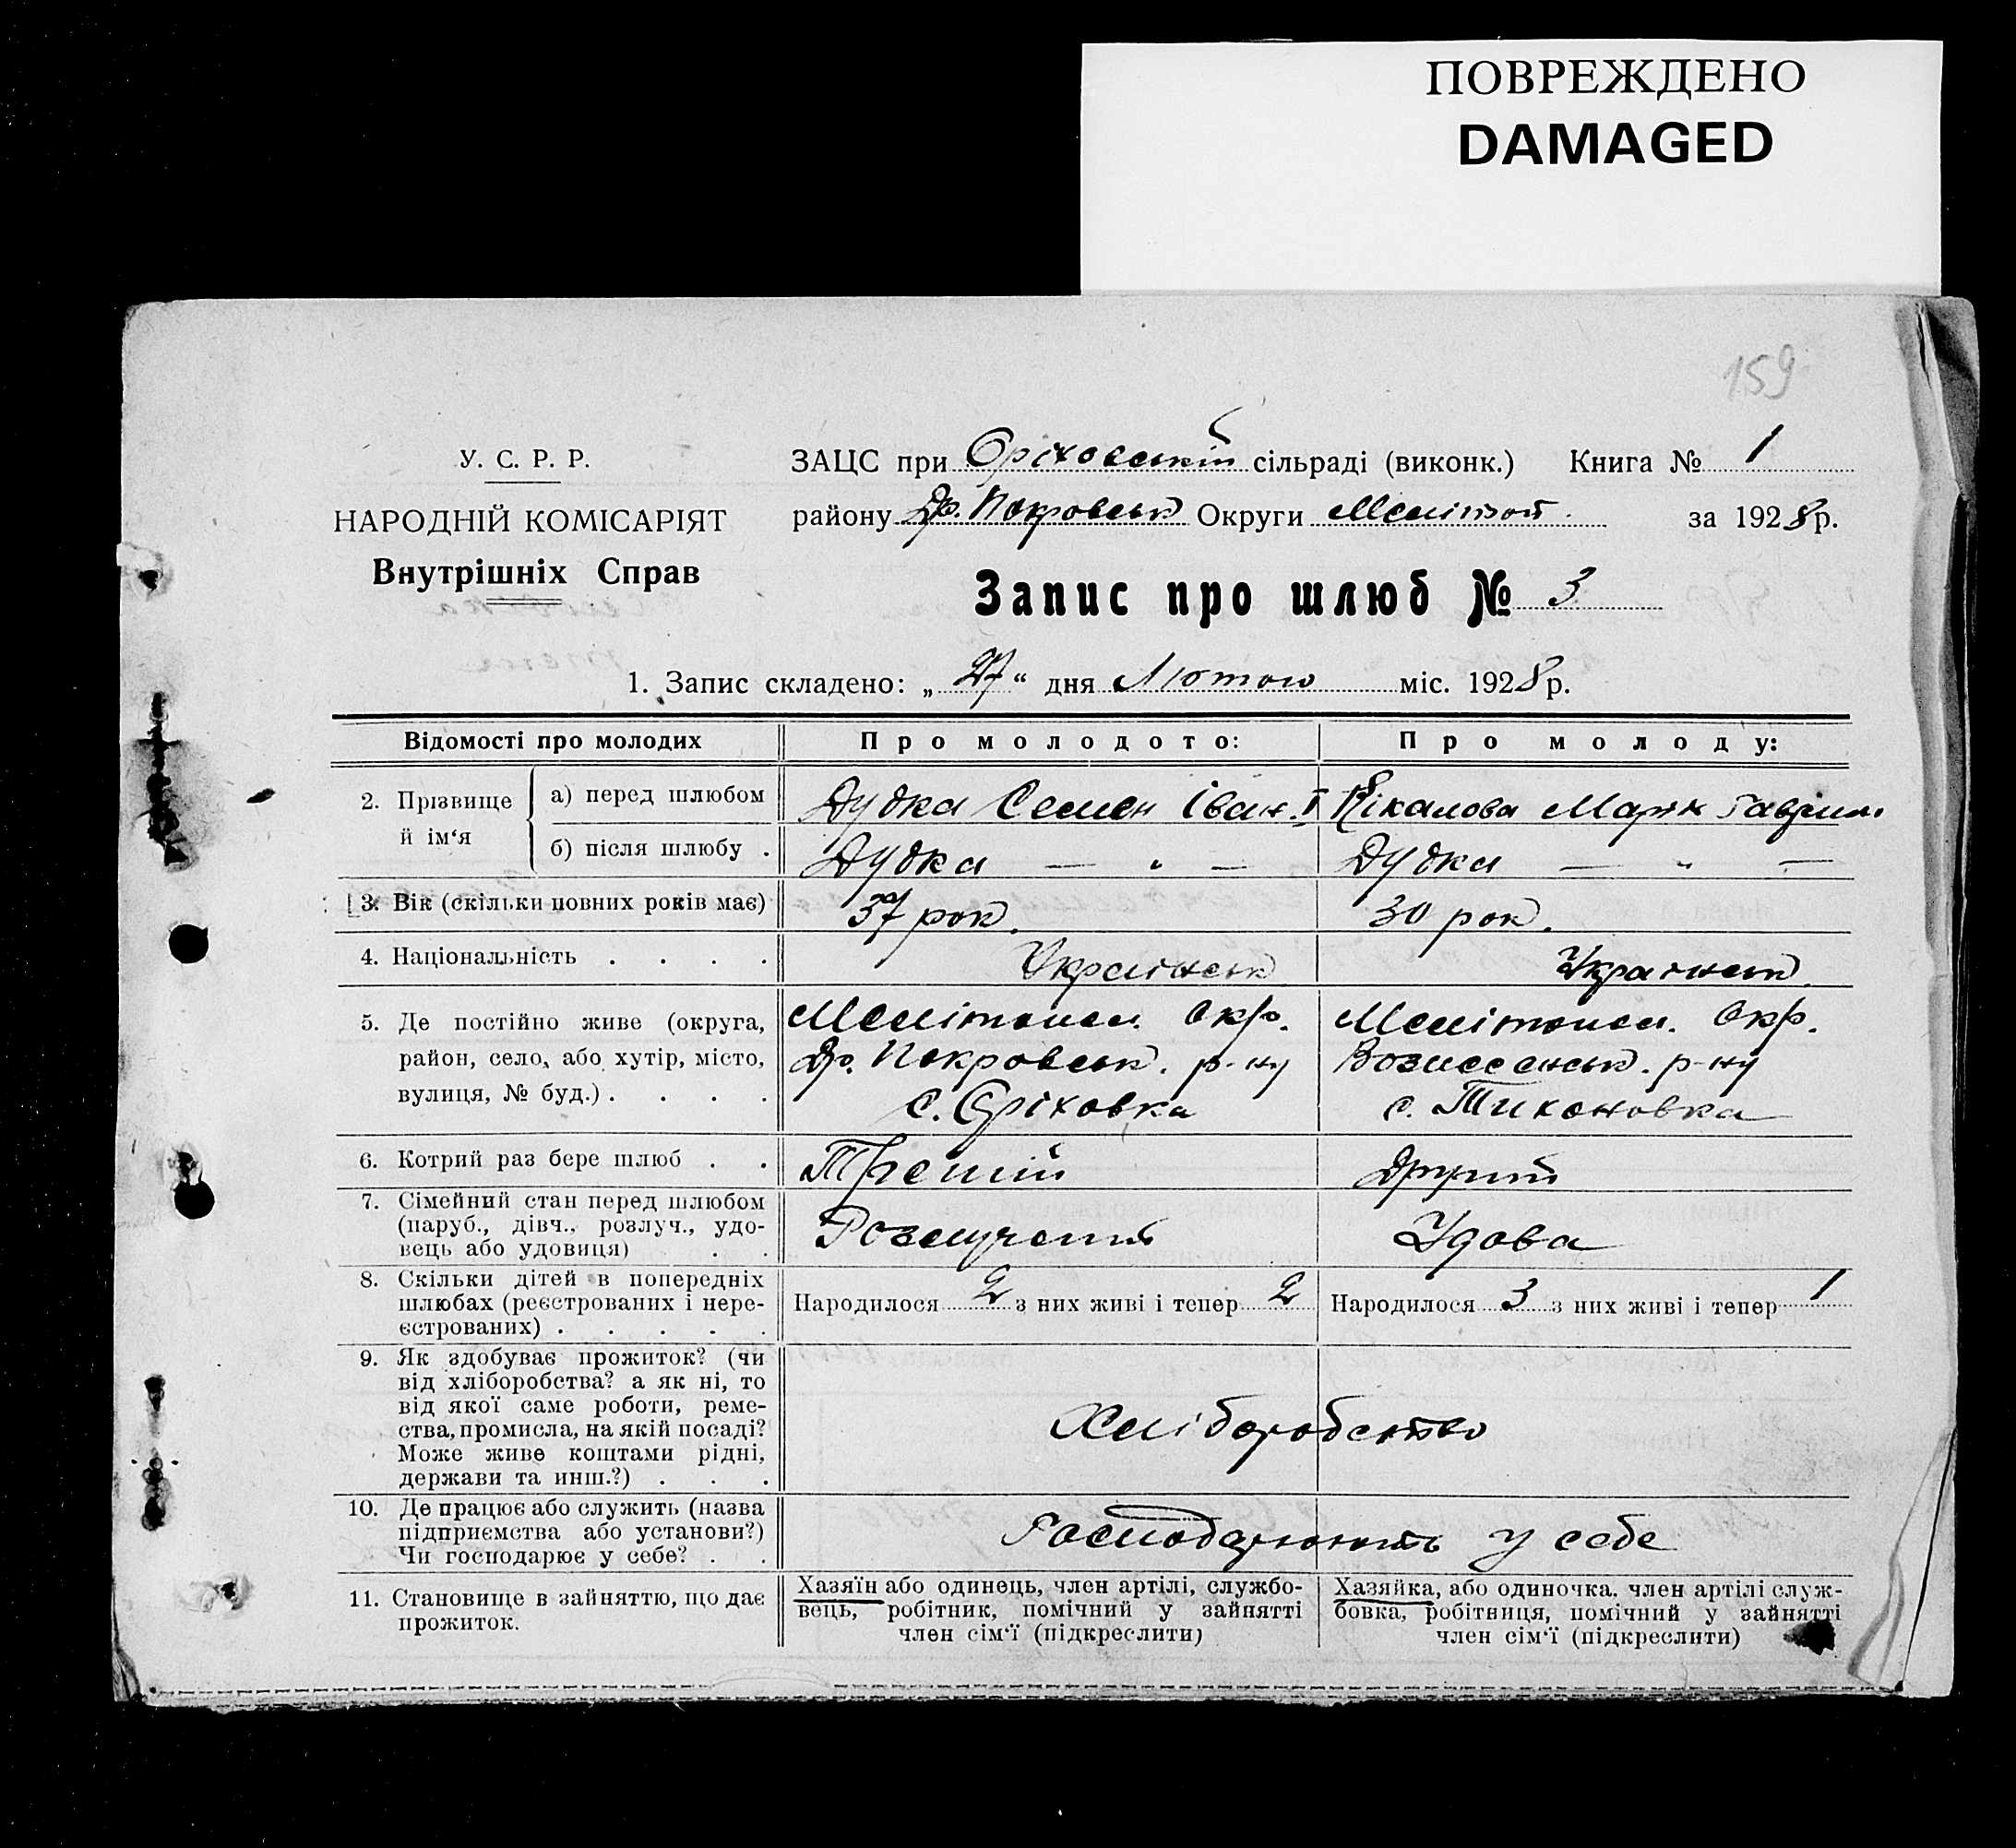 ПОВРЕЖДЕНО
DAMAGED
159
У. С. Р. Р.
НАРОДНІЙ КОМІСАРІЯТ
Внутрішніх Справ
ЗАЦС при Оріховській сільраді (виконк.) Книга № 1
району Др. Покровськ Округи Меліпот. за 1928 р.
Запис про шлюб № 3
1. Запис складено: „ 27 “ дня Лютого міс. 1928 р.
Відомості про молодих Про молодого: Про молоду:
2. Прізвище й ім‘я
а) перед шлюбом Дудка Семен Іван. Кікалова Марія Гаврил.
б) після шлюбу . Дудка — „ — Дудка — „ —
3. Вік (скільки повних років має) 37 рок. 30 рок.
4. Національність . . . . Українськ Українськ.
5. Де постійно живе (округа,
район, село, або хутір, місто,
вулиця, № буд.) . . . .
Мелітопол. Окр.
Др. Покровськ. р-ну
с. Оріховка
Мелітопол. Окр.
Вознесенськ. р-ну
с. Тихоновка
6. Котрий раз бере шлюб . . Третій Другий
7. Сімейний стан перед шлюбом
(паруб., дівч., розлуч., удо-
вець або удовиця) . .
Розлучений Удова
8. Скільки дітей в попередніх
шлюбах (реєстрованих і нере-
єстрованих) . . . . .
Народилося 2 з них живі і тепер 2 Народилося 3 з них живі і тепер 1
9. Як здобуває прожиток? (чи
від хліборобства? а як ні, то
від якої саме роботи, реме-
ства, промисла, на якій посаді?
Може живе коштами рідні,
держави та инш.?) . . .
Хліборобство
10. Де працює або служить (назва
підприємства або установи?)
Чи господарює у себе? . .
Господарюють у себе
11. Становище в зайняттю, що дає
прожиток.
Хазяїн або одинець, член артілі, службо-
вець, робітник, помічний у зайнятті
член сім‘ї (підкреслити)
Хазяйка, або одиночка. член артілі служ-
бовка, робітниця, помічний у зайнятті
член сім‘ї (підкреслити)